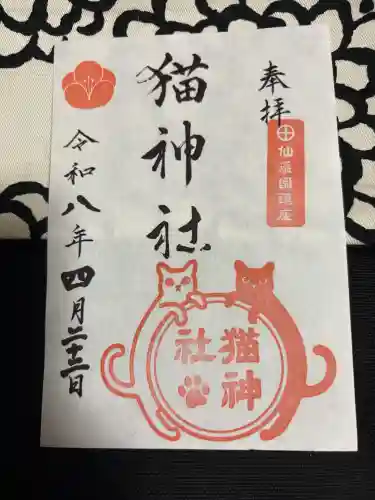 奉拝
仙巌園鎮座
猫神社
猫神
社
令和八年四月二十二日